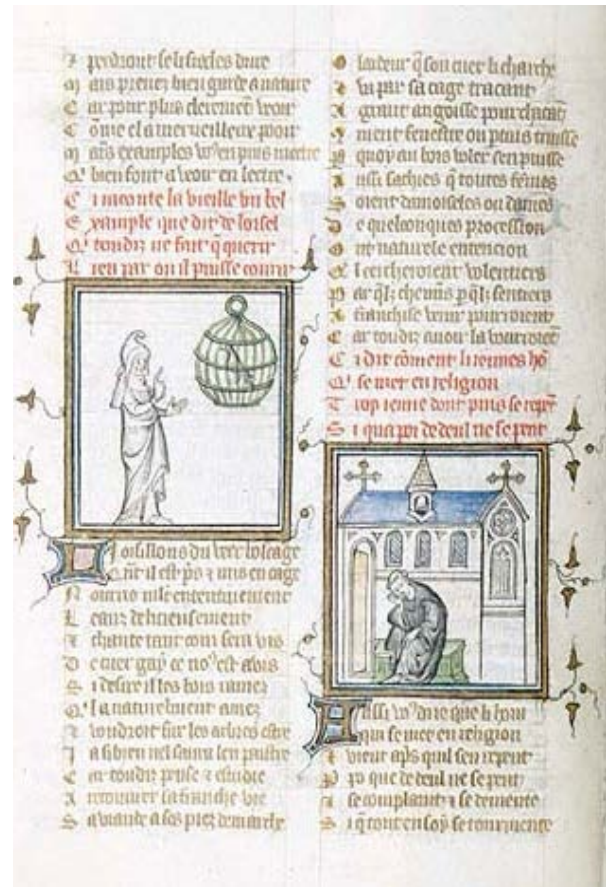 perdront se li siecles dure
Mais prenez bien garde a nature
Car pour plus cleremēt veoir
Cōme el a merveilleux pooir
Mains examples vous en puis mectre
Q' bien font a veoir en lectre
Ci raconte la vieille un bel
Example que dit de loisel
Q' toudiz ne fait q̄ querir
Lieu par ou il puisse courir
Loisillons du vert boscage
Qn̄t il est p's ⁊ mis en cage
Nourris mlt ententivement
Leanz deliteusement
⁊ chante tant com sera vis
De cuer gay ce vo9 est avis
Si desire il les bois ramez
Q'l a naturelment amez
⁊ voudroit sur les arbres estre
Ja si bien nel saura len paistre
Car toudiz pense ⁊ estudie
A recouvrer sa franche vie
Sa viande a ses piez demarche
O lardeur q̄ son cuer li charche
⁊ va par sa cage tracant
A grant angoisse pourchacāt
9ment fenestre ou pertuis truisse
Par quoy au bois voler sen puisse
Aussi sachies q̄ toutes fēmes
Soient damoiseles ou dames
De quelconques procession
Ont naturele entencion
Q'l cercheroient volentiers
Par q̄lz chemins p q̄lz sentiers
A franchise venir pourroient
Car toudiz avoir la vourdroiēt
Ci dit cōment li iennes hō
Q' se met en religion
Trop ienne dont puis se repēt
Si qua poi de deul ne se pent
Aussi vo9 di ie que li hom
Qui se met en religion
⁊ vient ap̄s quil sen repent
Po que de deul ne se pent
⁊ se complaint ⁊ se demente
Si q̄ tout en soy se tourmente